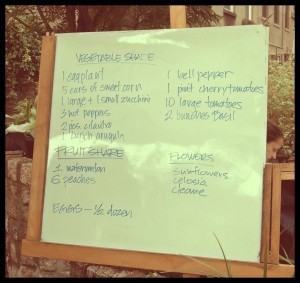 VEGETABLE SHARE
1 eggplant
5 ears of sweet corn
1 large + 1 small zucchini
3 hot peppers
2 pcs. cilantro
1 bunch arugula
1 bell pepper
1 pint cherry tomatoes
10 large tomatoes
2 bunches Basil
FRUIT SHARE
1 watermelon
6 peaches
FLOWERS
sunflowers
celosia
cleome
EGGS - 1/2 dozen